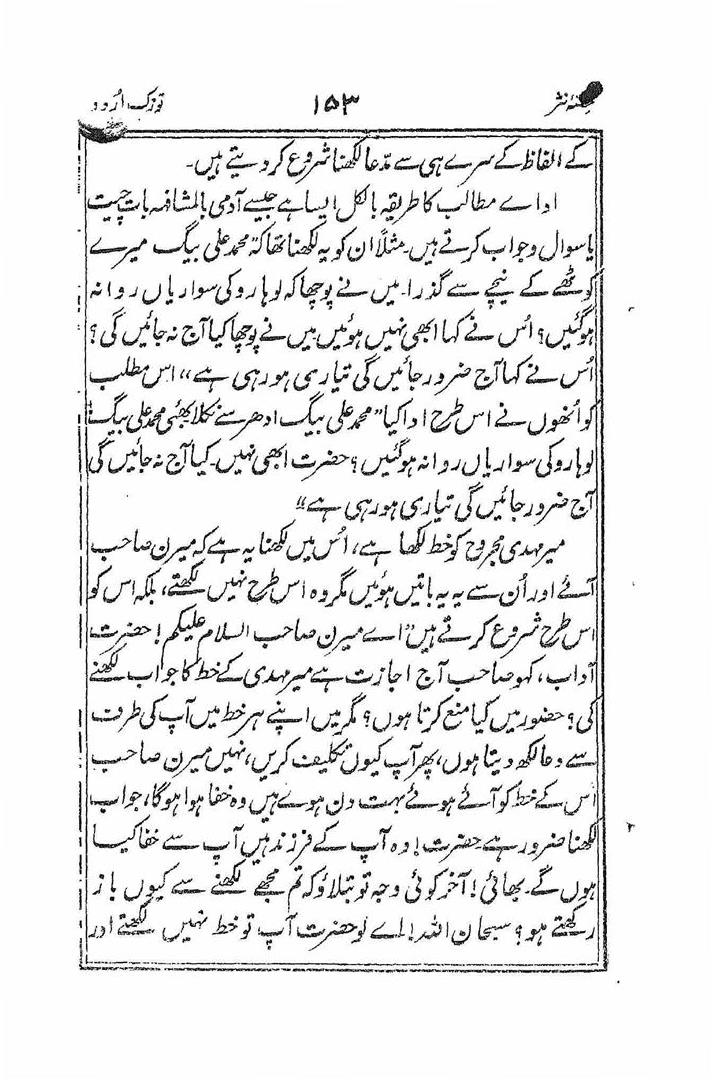 حصۂ نثر ۱۵۳ توزک اُردو
کے الفاظ کے سرے ہی سے مدّعا لکھنا شروع کر دیتے ہیں۔
اداے مطالب کا طریقہ بالکل ایسا ہے جیسے آدمی بالمشافہہ بات چیت
یا سوال و جواب کرتے ہیں۔ مثلاً ان کو یہ لکھنا تھا کہ محمد علی بیگ میرے
کوٹھے کے نیچے سے گذرا۔ میں نے پوچھا کہ لوہارو کی سواریاں روانہ
ہو گئیں؟ اُس نے کہا ابھی نہیں ہوئیں میں نے پوچھا کیا آج نہ جائیں گی؟
اُس نے کہا آج ضرور جائیں گی تیاری ہو رہی ہے،، اس مطلب
کو اُنھوں نے اس طرح ادا کیا ”محمد علی بیگ ادھر سے نکلا بھئی محمد علی بیگ
لوہارو کی سواریاں روانہ ہو گئیں؟ حضرت ابھی نہیں۔ کیا آج نہ جائیں گی
آج ضرور جائیں گی تیاری ہو رہی ہے“
میر مہدی مجروح کو خط لکھا ہے، اُس میں لکھنا یہ ہے کہ میرن صاحب
آئے اور اُن سے یہ یہ باتیں ہوئیں مگر وہ اس طرح نہیں لکھتے، بلکہ اس کو
اس طرح شروع کرتے ہیں ”اے میرن صاحب السلام علیکم! حضرت
آداب، کہو صاحب آج اجازت ہے میر مہدی کے خط کا جواب لکھنے
کی؟ حضور میں کیا منع کرتا ہوں؟ مگر میں اپنے ہر خط میں آپ کی طرف
سے دعا لکھ دیتا ہوں، پھر آپ کیوں تکلیف کریں، نہیں میرن صاحب
اس کے خط کو آئے ہوئے بہت دن ہوے ہیں وہ خفا ہوا ہوگا، جواب
لکھنا ضرور ہے حضرت! وہ آپ کے فرزند ہیں آپ سے خفا کیا
ہوں گے۔ بھائی! آخر کوئی وجہ تو بتلاؤ کہ تم مجھے لکھنے سے کیوں باز
رکھتے ہو؟ سبحان اللہ! اے لو حضرت آپ تو خط نہیں لکھتے اور